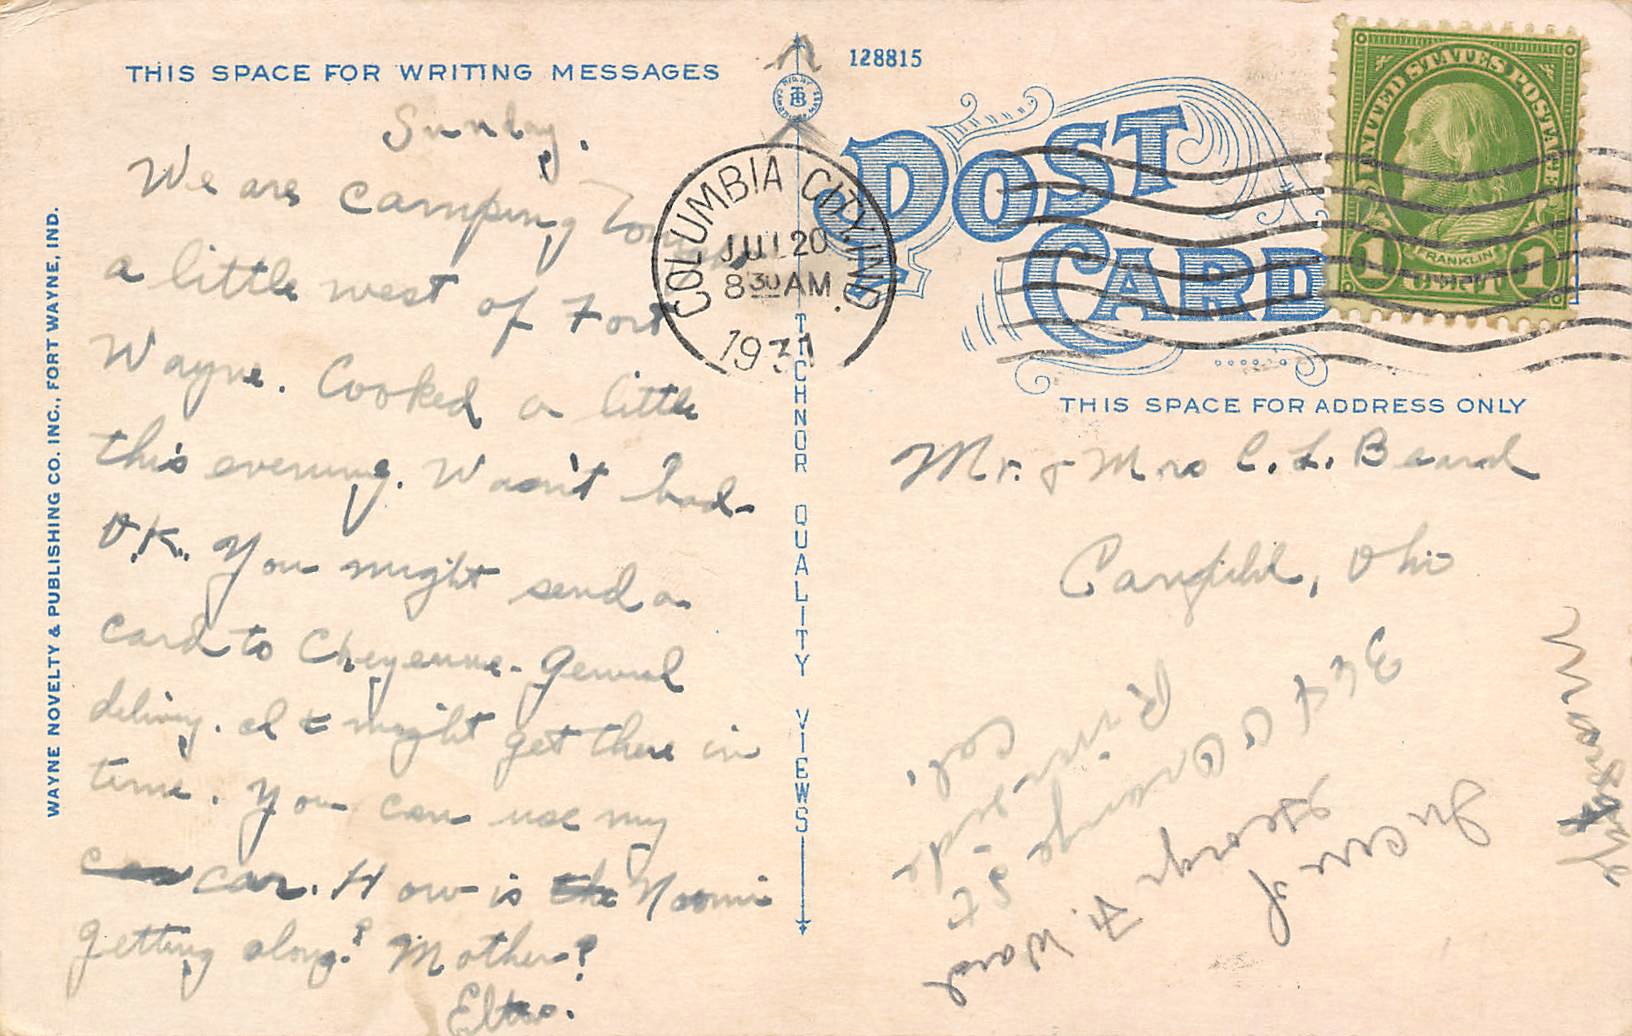 THIS SPACE FOR WRITING MESSAGES
Sunday.
We are camping
a little west of Fort
Wayne. Cooked a little
this evening. Wasn't bad-
O.K. You might send a
card to Cheyenne - General
delivery. It might get there in
time. You can use my
car. How is Naomi
getting along? Mother?
WAYNE NOVELTY & PUBLISHING CO. INC., FORT WAYNE, IND.
128815
POST
CARD
COLUMBIA CITY, IND.
JUL 20
8 30 AM
1931
UNITED STATES POSTAGE
FRANKLIN
1 CENT 1
TICHNOR QUALITY VIEWS
THIS SPACE FOR ADDRESS ONLY
Mr. & Mrs C. L. Beard
Canfield, Ohio
In care of
George F. Ward
Orange St
Riverside
Cal.